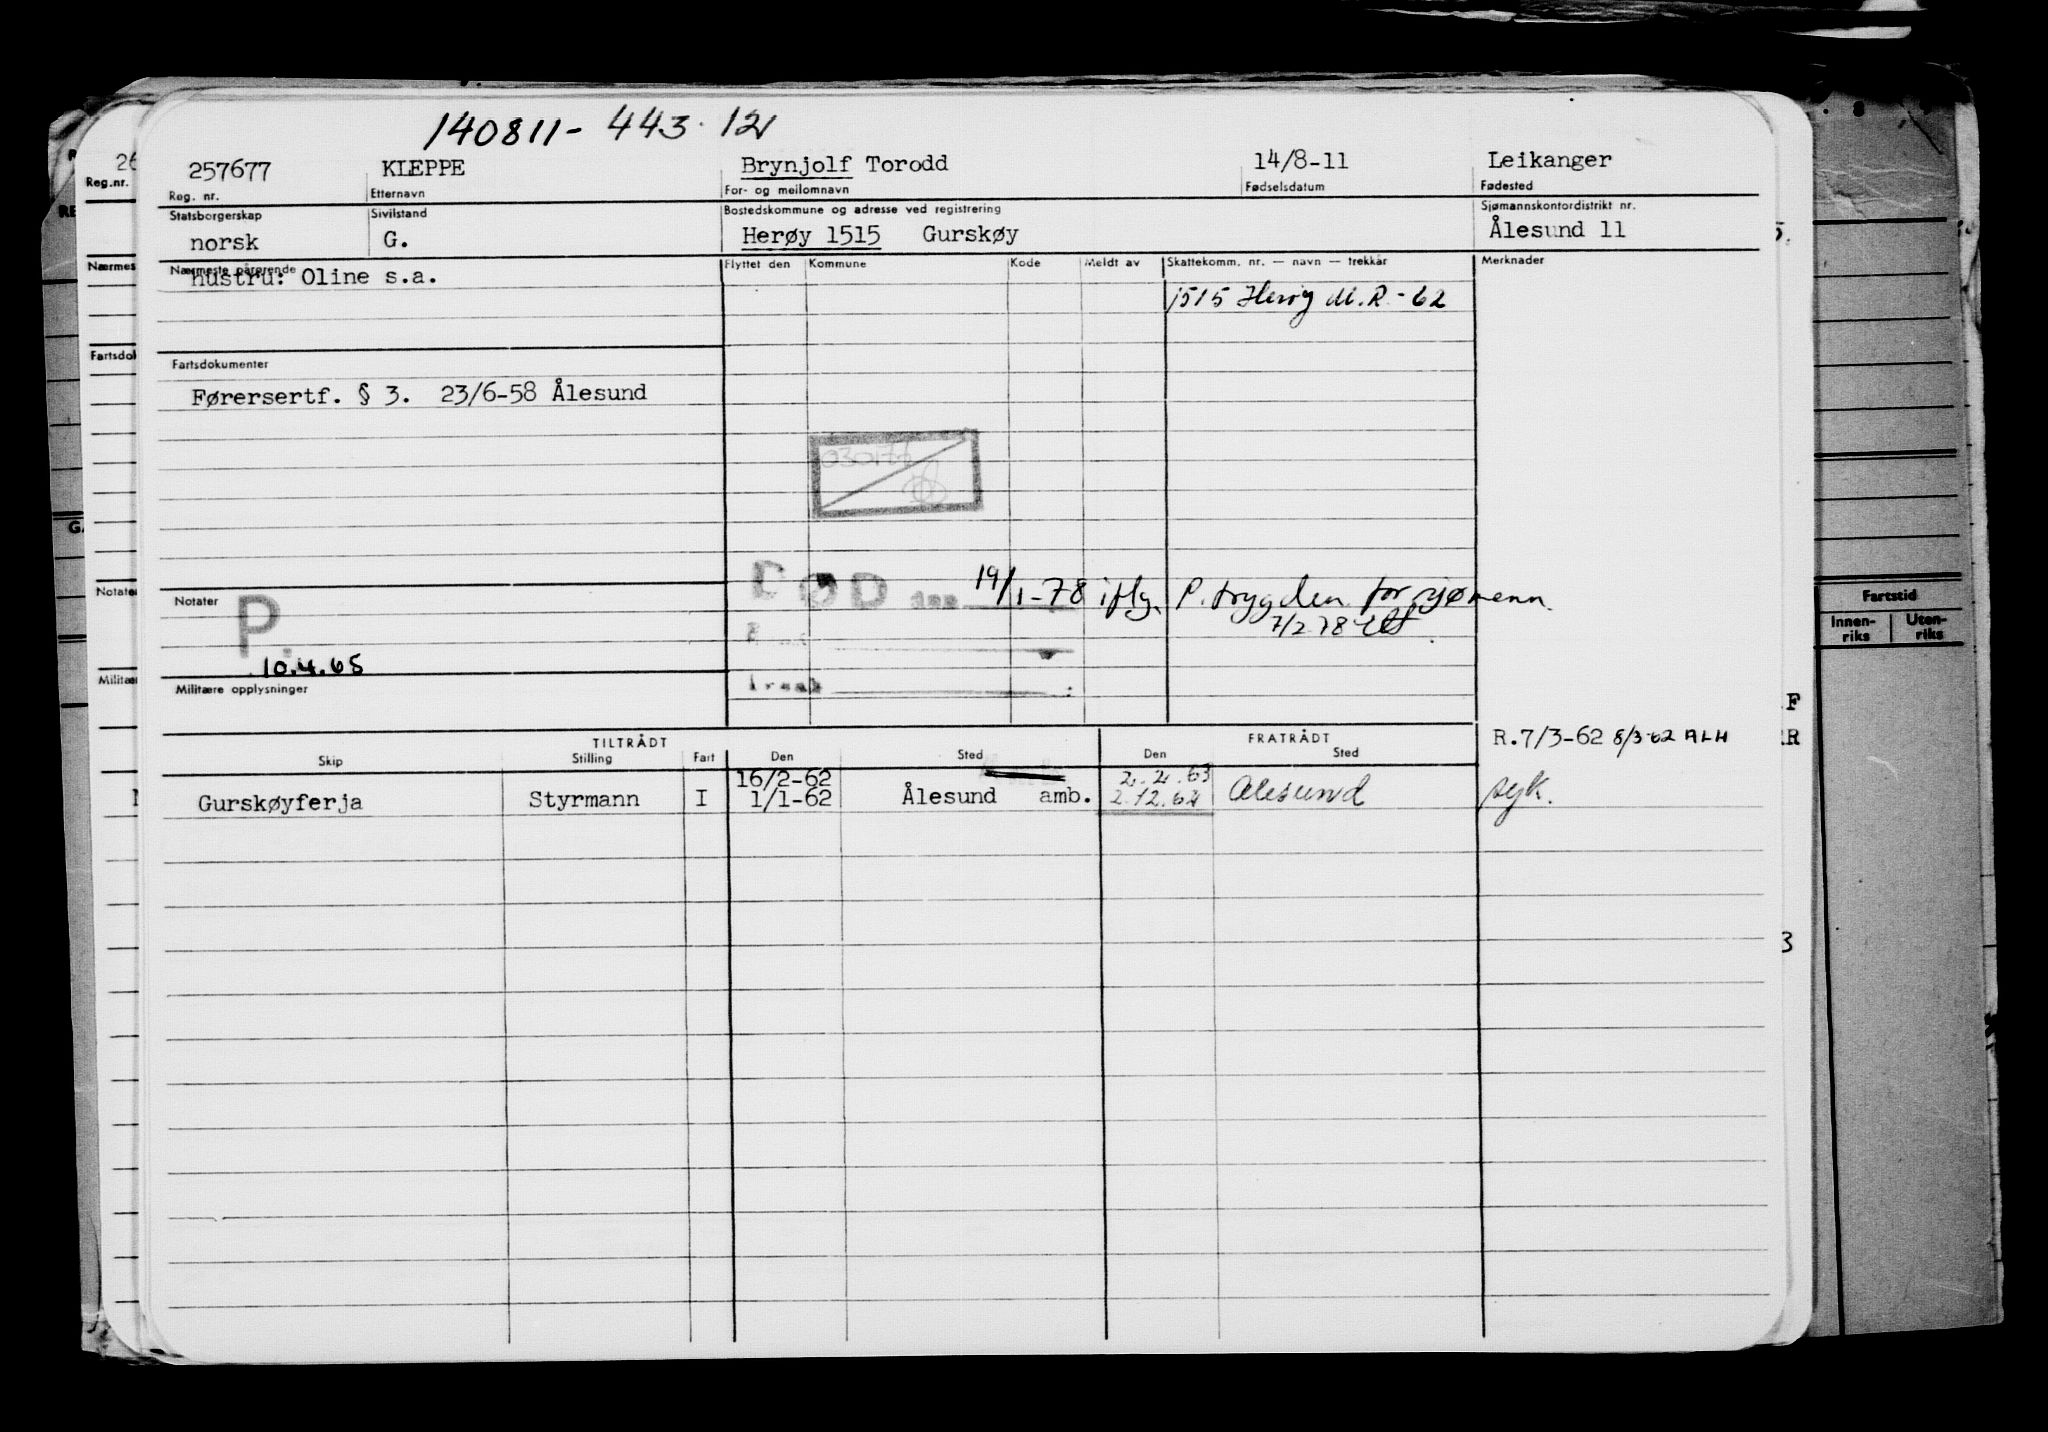 140811-443.12
257677 KLEPPE Brynjolf Torodd 14/8-11 Leikanger
Reg. nr. Etternavn For- og mellomnavn Fødselsdatum Fødested
Statsborgerskap Sivilstand Bostedskommune og adresse ved registrering Sjømannskontordistrikt nr.
norsk G. Herøy 1515 Gurskøy Ålesund 11
Nærmeste pårørende Flyttet den Kommune Kode Meldt av Skattekomm. nr. — navn — trekkår Merknader
hustru: Oline s.a.
1515 Herøy M.R.-62
Fartsdokumenter
Førersertf. § 3. 23/6-58 Ålesund
030177
DØD den 19/1-78 iflg. P.trygden for sjømenn.
Notater
7/2 78
P.
10.4.65
Militære opplysninger
TILTRÅDT FRATRÅDT R.7/3-62 8/3-62 ALH
Skip Stilling Fart Den Sted Den Sted
16/2-62 2.2.63
Gurskøyferja Styrmann I 1/1-62 Ålesund amb. 2.12.62 Ålesund syk.
26
Reg.nr.
Nærmes
Fartsdo
Notate
Militæ
Fartstid
Innen-riks Uten-riks